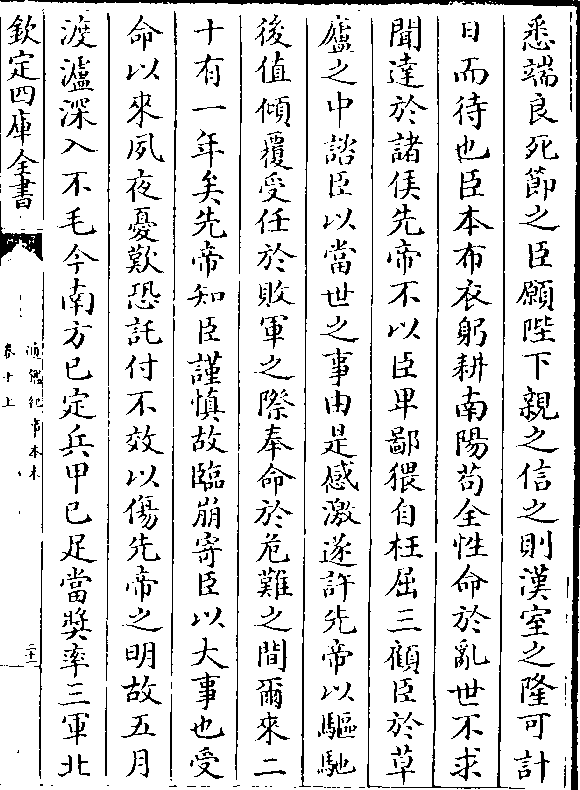 悉端良死節之臣願陛下親之信之則漢室之隆可計
日而待也臣本布衣躬耕南陽苟全性命於亂世不求
聞達於諸侯先帝不以臣卑鄙猥自枉屈三顧臣於草
廬之中諮臣以當世之事由是感激遂許先帝以驅馳
後值傾覆受任於敗軍之際奉命於危難之間爾來二
十有一年矣先帝知臣謹慎故臨崩寄臣以大事也受
命以來夙夜憂歎恐託付不效以傷先帝之明故五月
渡瀘深入不毛今南方已定兵甲已足當獎率三軍北
欽定四庫全書
通鑑紀事本末
卷十上